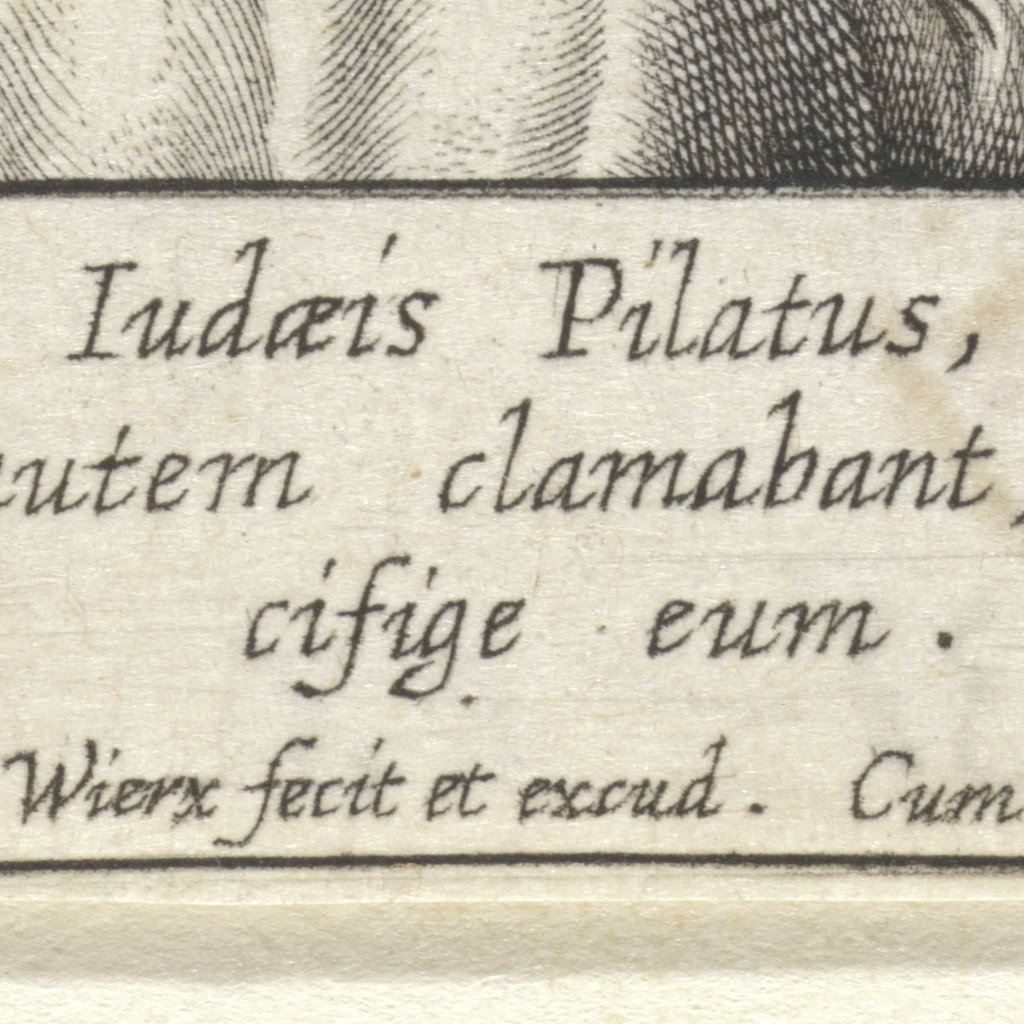 Iudæis Pilatus,
autem clamabant,
cifige eum .
Wierx fecit et excud . Cum